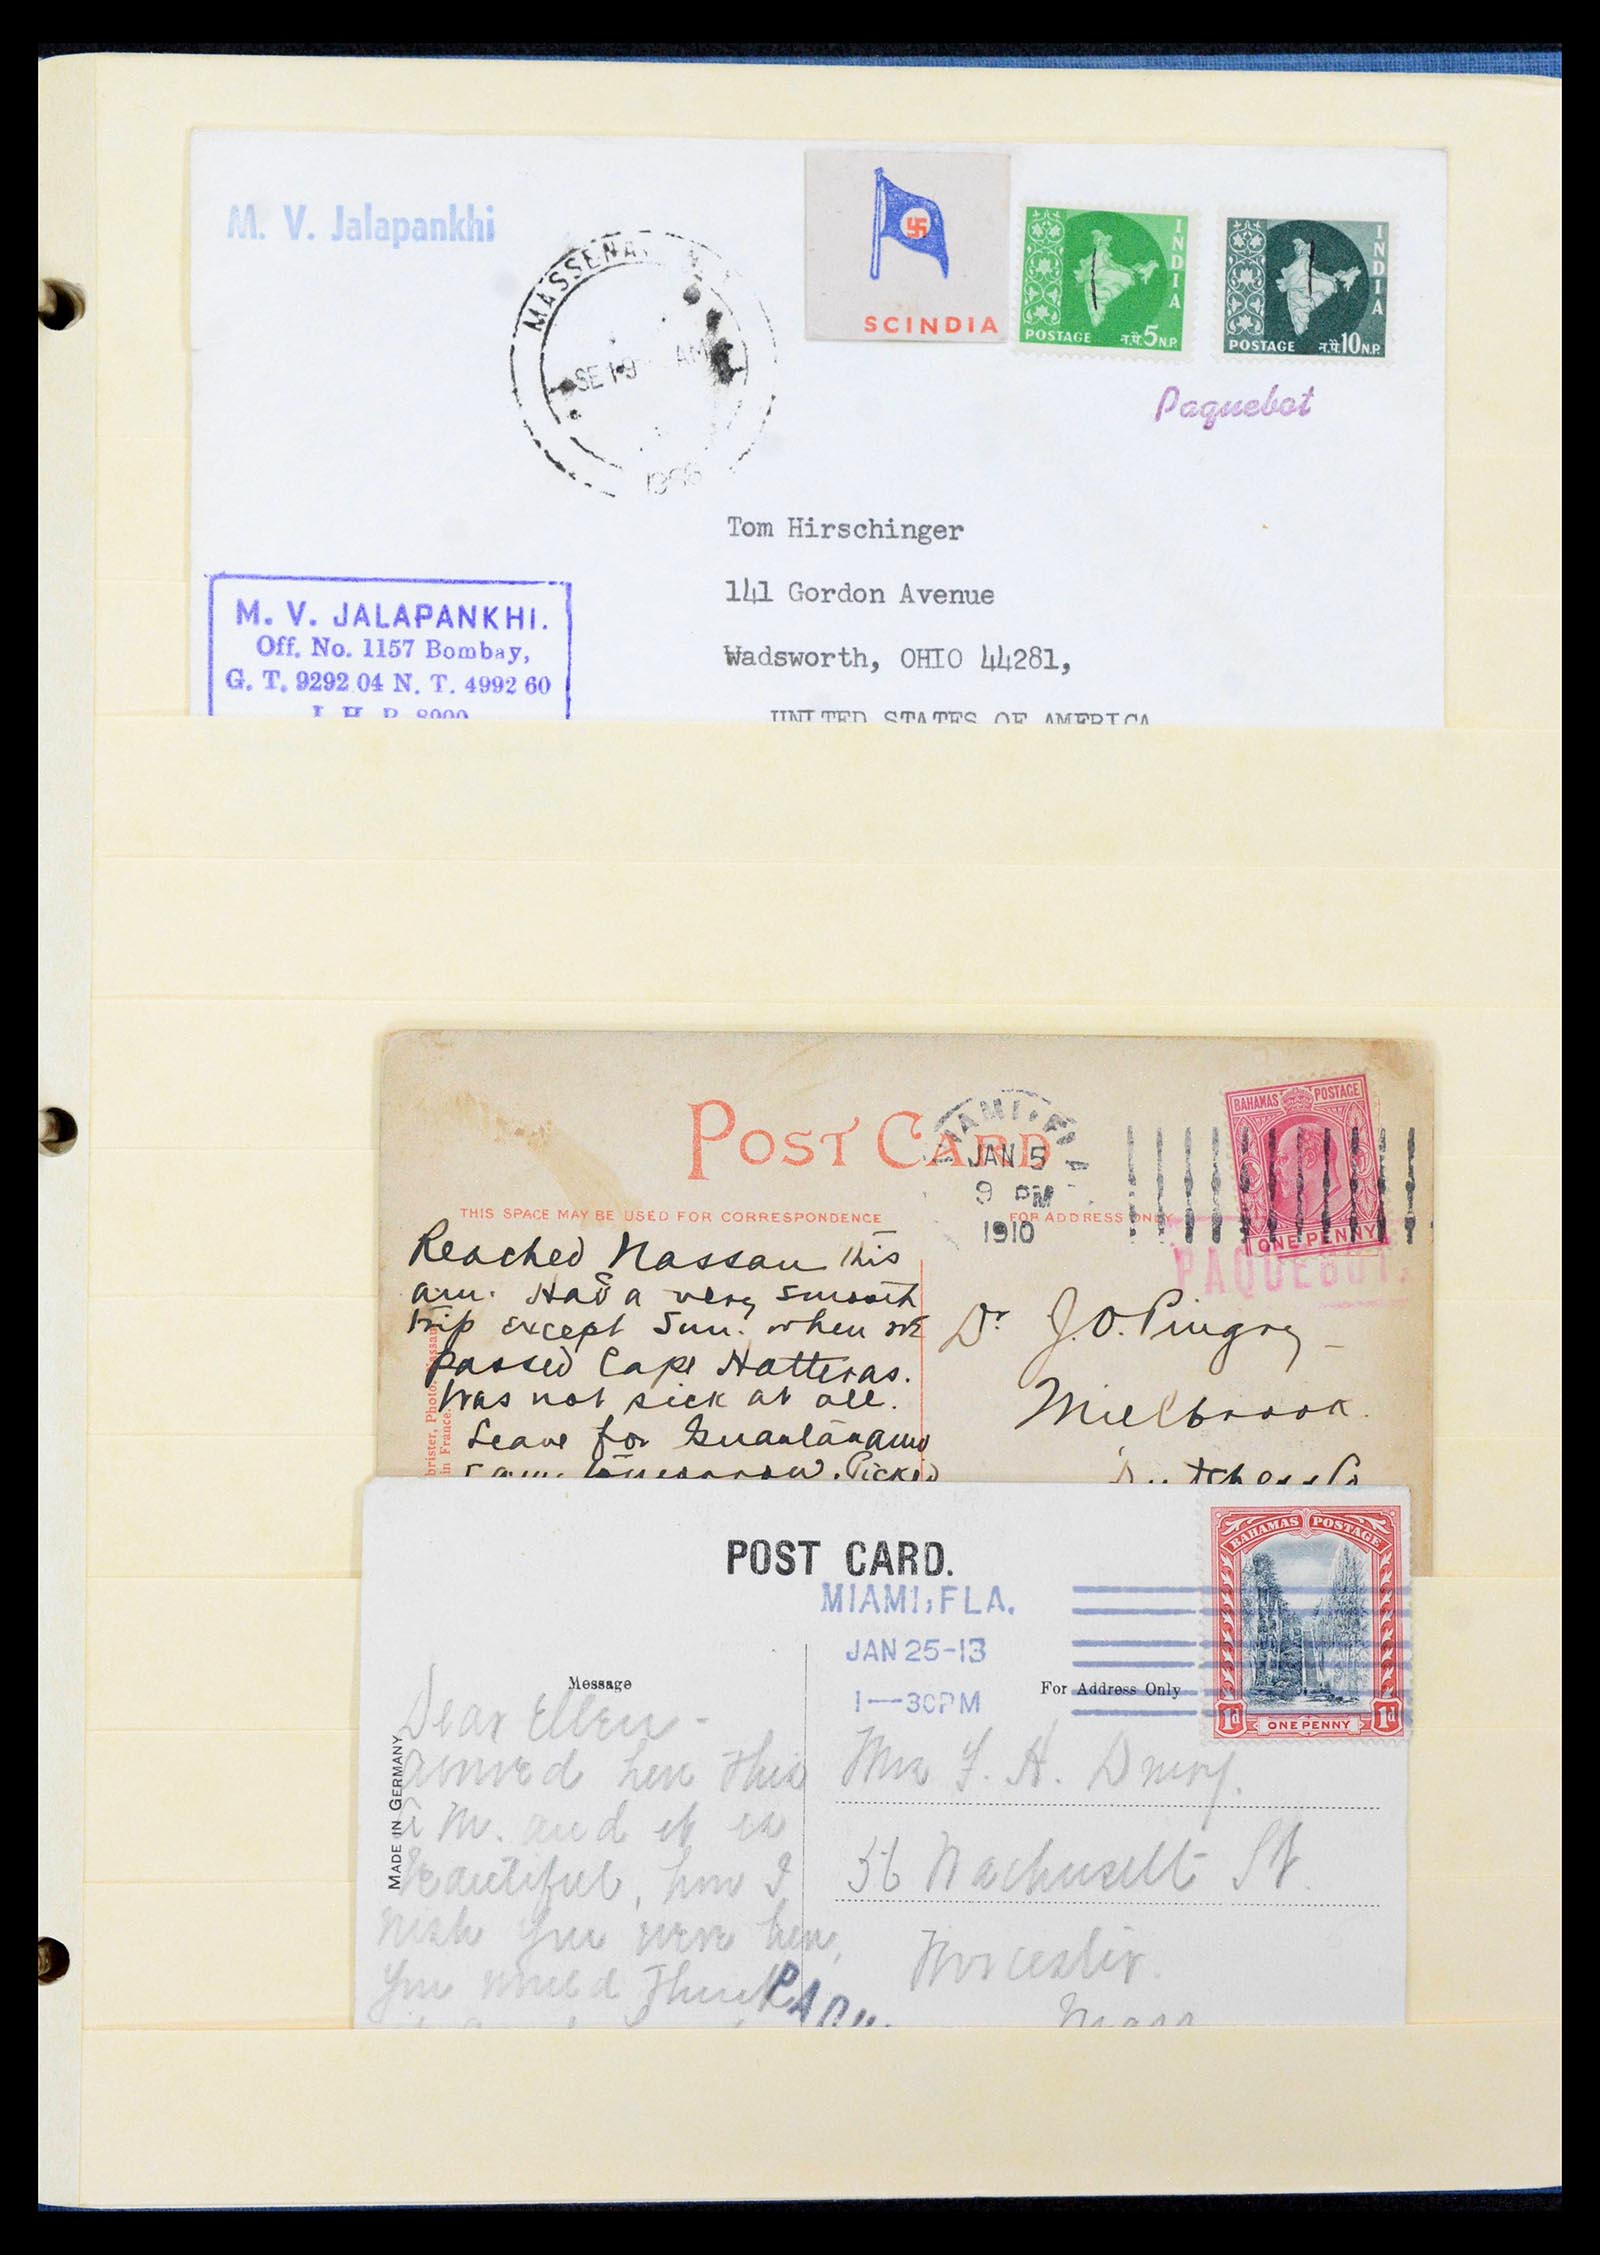 M. V. Jalapankhi
MASSENA,
SE 19 AM
SCINDIA
INDIA
POSTAGE न.पै.5 N.P.
INDIA
POSTAGE न.पै.10 N.P.
Paquebot
Tom Hirschinger
141 Gordon Avenue
Wadsworth, OHIO 44281,
UNITED STATES OF AMERICA
M. V. JALAPANKHI.
Off. No. 1157 Bombay,
G. T. 9292.04 N. T. 4992 60
I. H. P. 8000
POST CARD
MIAMI, FLA
JAN 5
9 PM
1910
BAHAMAS POSTAGE
ONE PENNY
PAQUEBOT.
THIS SPACE MAY BE USED FOR CORRESPONDENCE
FOR ADDRESS ONLY
Reached Nassau this
am. Had a very smooth
trip except Sun. when we
passed Cape Hatteras.
Was not sick at all.
Leave for Guantánamo
a.m. tomorrow. Picked
brister, Photo. Nassau
in France.
Dr J. O. Pingry
Millbrook.
Dutchess Co
POST CARD.
MIAMI, FLA.
JAN 25-13
1-30PM
BAHAMAS POSTAGE
1d ONE PENNY 1d
Message
For Address Only
MADE IN GERMANY
Dear Ellen -
arrived here this
A M. and it is
beautiful, how I
wish you were here,
you would think
PAQU
Mrs F. H. Drury.
56 Wachusett St.
Worcester.
Mass